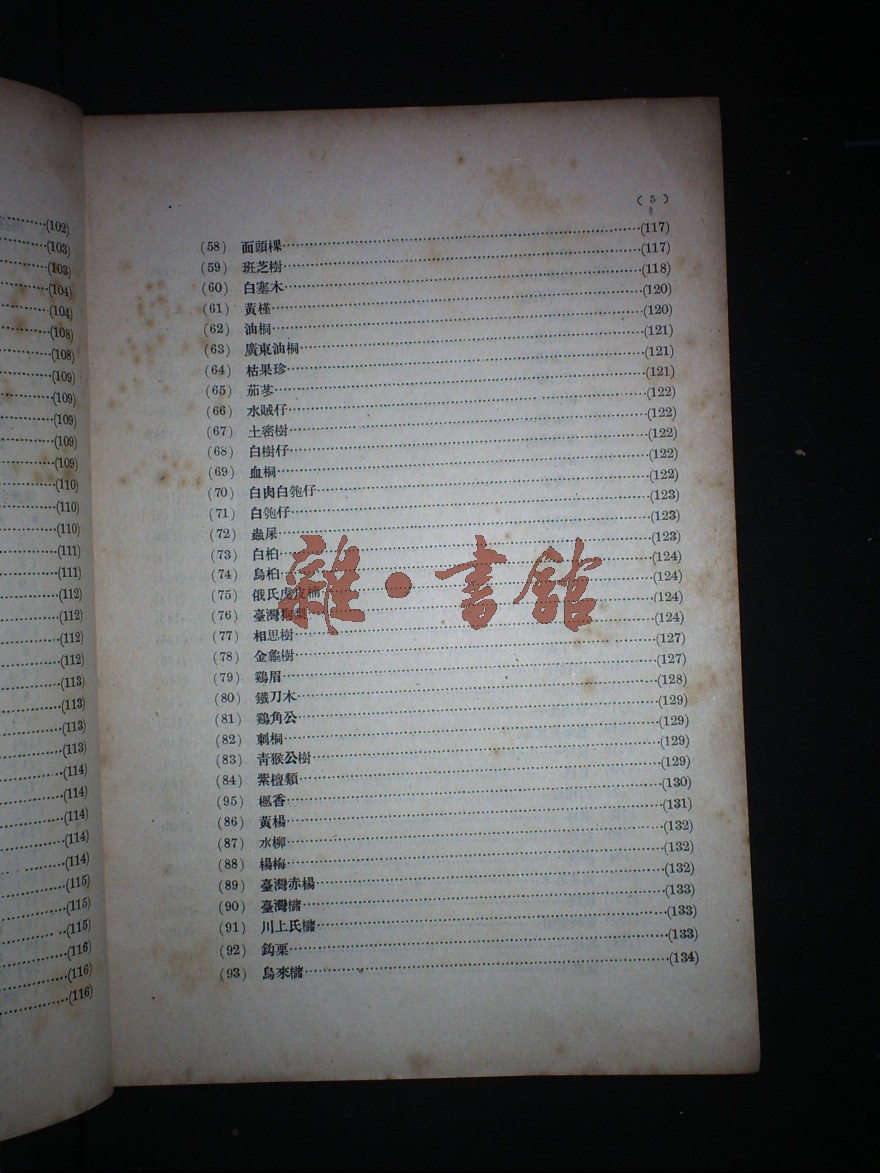 (102)
(103)
(103)
(104)
(104)
(108)
(108)
(109)
(109)
(109)
(109)
(109)
(110)
(110)
(110)
(111)
(111)
(112)
(112)
(112)
(112)
(113)
(113)
(113)
(113)
(114)
(114)
(114)
(114)
(114)
(115)
(115)
(115)
(116)
(116)
(116)
( 5 )
(58) 面頭棵……(117)
(59) 班芝樹……(117)
(60) 白塞木……(118)
(61) 黃槿……(120)
(62) 油桐……(120)
(63) 廣東油桐……(121)
(64) 枯果珍……(121)
(65) 茄苳……(121)
(66) 水賊仔……(122)
(67) 土密樹……(122)
(68) 白樹仔……(122)
(69) 血桐……(122)
(70) 白肉白匏仔……(122)
(71) 白匏仔……(123)
(72) 蟲屎……(123)
(73) 白桕……(123)
(74) 烏桕……(124)
(75) 俄氏虎皮楠……(124)
(76) 臺灣狗梨……(124)
(77) 相思樹……(124)
(78) 金龜樹……(127)
(79) 鷄眉……(127)
(80) 鐵刀木……(128)
(81) 鷄角公……(129)
(82) 刺桐……(129)
(83) 青猴公樹……(129)
(84) 紫檀類……(129)
(95) 楓香……(130)
(86) 黃楊……(131)
(87) 水柳……(132)
(88) 楊梅……(132)
(89) 臺灣赤楊……(132)
(90) 臺灣櫧……(133)
(91) 川上氏櫧……(133)
(92) 鈎栗……(133)
(93) 烏來櫧……(134)
雜·書館